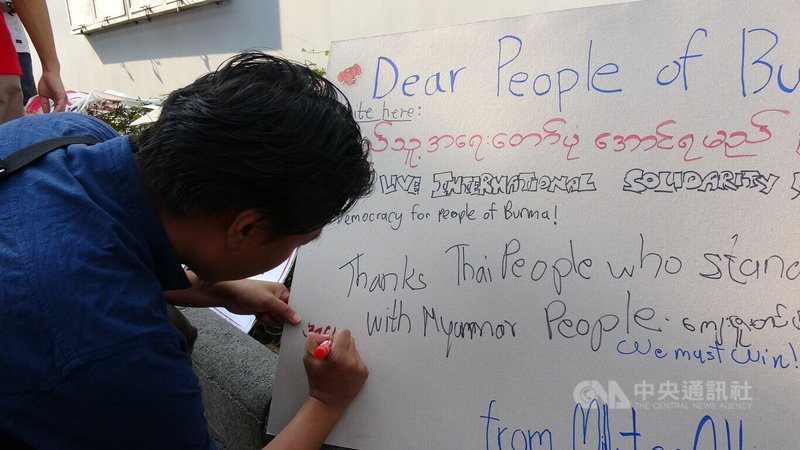 Dear People of Bu
ite here:
ည်သူ့အရေးတော်ပုံ အောင်ရမည်
LIVE INTERNATIONAL SOLIDARITY
Democracy for people of Burma!
Thanks Thai People who stand
with Myanmar People.
We must win!
CNA 中央通訊社
THE CENTRAL NEWS AGENCY
from